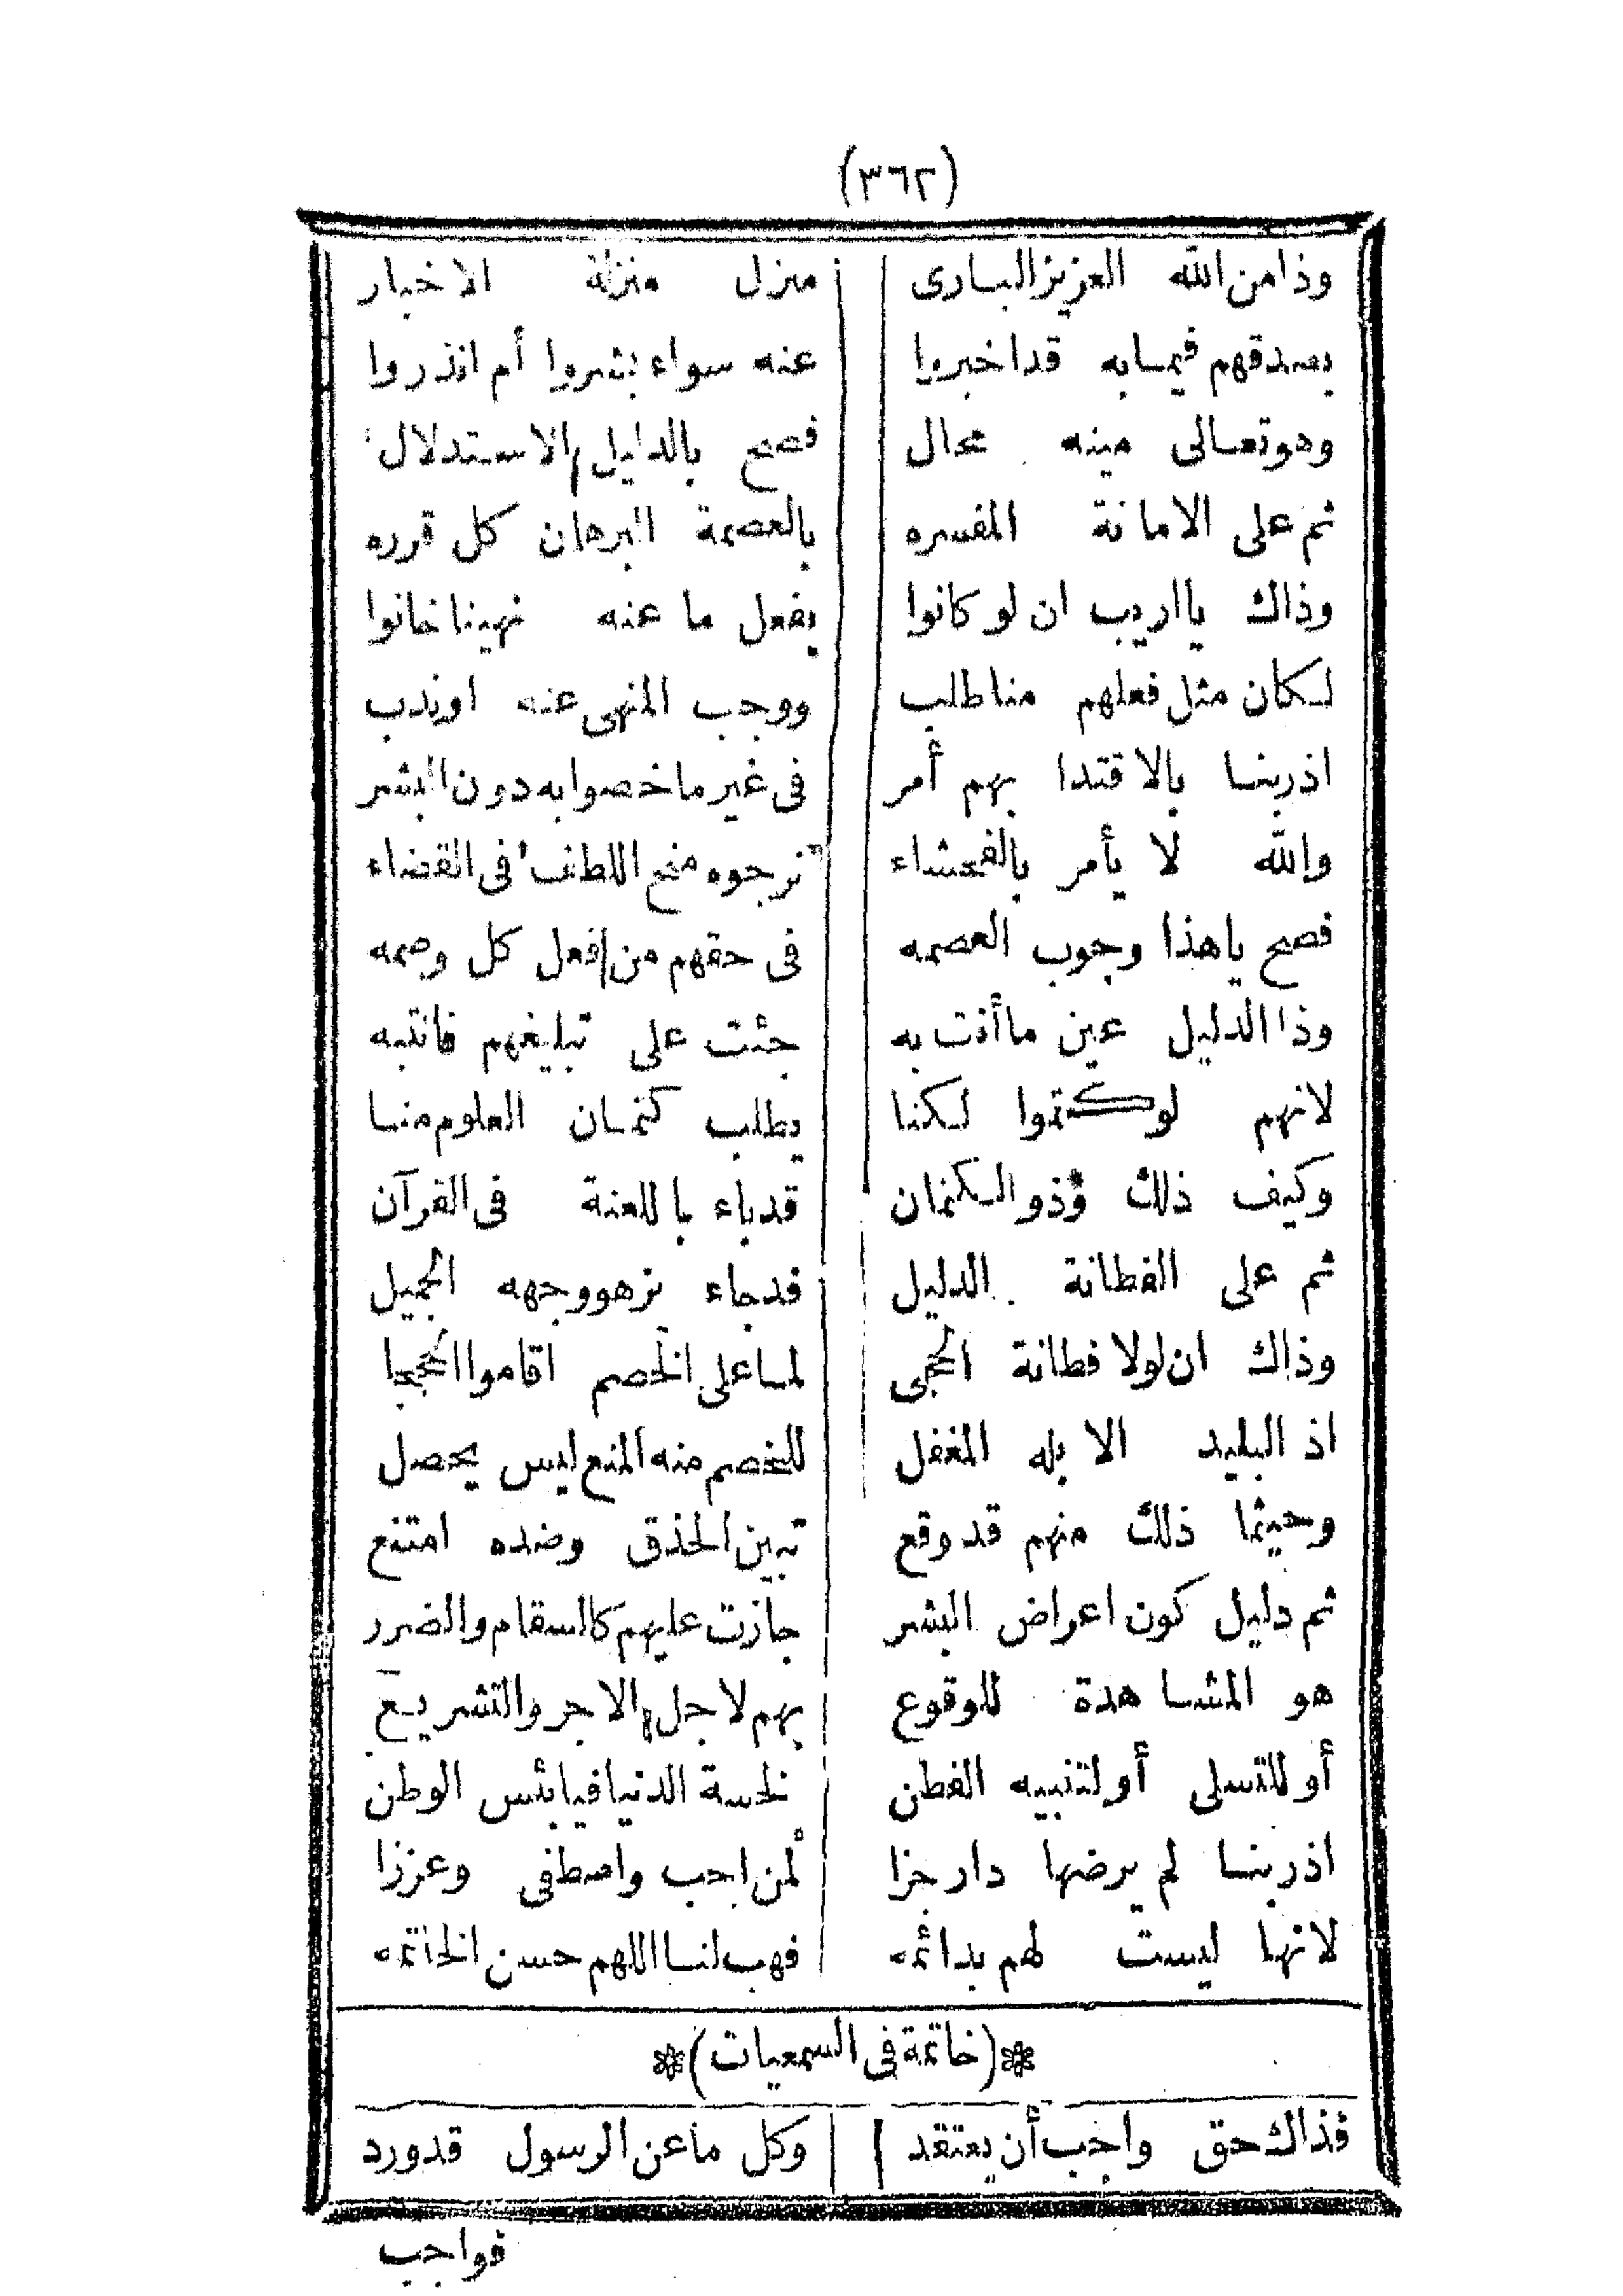 (٣٦٢)
وذا من الله العزيز البارى منزل منزلة الاخبار
بصدقهم فيما به قد اخبروا عنه سواء بشروا أم انذروا
وهو تعالى مينه محال فصح بالدليل الاستدلال
ثم على الامانة المفسره بالعصمة البرهان كل قرره
وذاك يا اريب ان لو كانوا بفعل ما عنه نهينا خانوا
لكان مثل فعلهم منا طلب ووجب المنهى عنه او ندب
اذ ربنا بالاقتدا بهم أمر فى غير ما خصوا به دون البشر
والله لا يأمر بالفحشاء نرجوه منح اللطف فى القضاء
فصح يا هذا وجوب العصمه فى حقهم من فعل كل وصمه
وذا الدليل عين ما أنت به جئت على تبليغهم فانتبه
لانهم لو كتموا لكنا يطلب كتمان العلوم منا
وكيف ذلك وذو الكتمان قد باء باللعنة فى القرآن
ثم على الفطانة الدليل قد جاء يزهو وجهه الجميل
وذاك ان لولا فطانة الحجى لما على الخصم اقاموا الحججا
اذ البليد الابله المغفل للخصم منه المنع ليس يحصل
وحيثما ذلك منهم قد وقع تبين الحذق وضده امتنع
ثم دليل كون اعراض البشر جازت عليهم كالسقام والضرر
هو المشاهدة للوقوع بهم لاجل الاجر والتشريع
أو للتسلى أو لتنبيه الفطن لخسة الدنيا فيا بئس الوطن
اذ ربنا لم يرضها دار جزا لمن احب واصطفى وعززا
لانها ليست لهم بدائمه فهب لنا اللهم حسن الخاتمه
(خاتمة فى السمعيات)
فذاك حق واجب أن يعتقد وكل ما عن الرسول قد ورد
فواجب